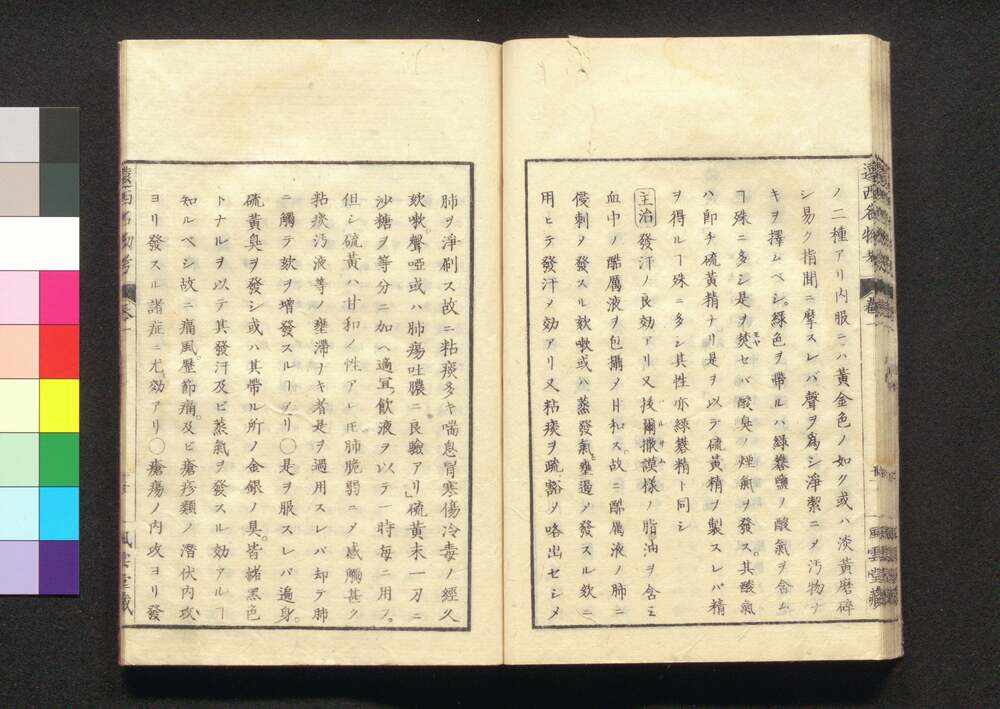 ノ二種アリ内服ニハ黃金色ノ如ク或ハ淡黃磨碎
シ易ク指間ニ摩スレバ聲ヲ爲シ淨潔ニ〆汚物ナ
キヲ擇ムベシ。綠色ヲ帶ルハ綠礬鹽ノ酸氣ヲ含ム
ヿ殊ニ多シ是ヲ焚セバ酸臭ノ煙氣ヲ發ス。其酸氣
ハ卽チ硫黃精ナリ是ヲ以テ硫黃精ヲ製スレバ精
ヲ得ルヿ殊ニ多シ其性亦綠礬精ト同シ
主治 發汗ノ良効アリ又拔爾撒謨樣ノ脂油ヲ含ミ
血中ノ酷厲液ヲ包攝〆甘和ス。故ニ酷厲液ノ肺ニ
侵刺〆發スル欬嗽或ハ蒸發氣壅遏〆發スル欬ニ
用ヒテ發汗〆効アリ又粘痰ヲ疏豁〆咯出セシメ
肺ヲ淨刷ス故ニ粘痰多キ喘息冒寒傷冷毒ノ經久
欬嗽。聲啞或ハ肺瘍吐膿ニ良驗アリ」硫黃末一刀ニ
沙糖ヲ等分ニ加ヘ適宜ノ飮液ヲ以テ一時每ニ用フ。
但シ硫黃ハ甘和ノ性アレ𪜈肺脆弱ニ〆感觸甚ク
粘痰汚液等ノ壅滯ナキ者是ヲ過用スレバ却テ肺
ニ觸テ欬ヲ增發スルヿアリ〇是ヲ服スレバ遍身。
硫黃臭ヲ發シ或ハ其帶ル所ノ金銀ノ具。皆緖黑色
トナルヲ以テ其發汗及ビ蒸氣ヲ發スル効アルヿ
知ルベシ故ニ痛風。歷節痛。及ビ瘡疹類ノ潛伏內攻
ヨリ發スル諸症ニ尤効アリ〇瘡瘍ノ內攻ヨリ發
遠西名物考
卷一
風雲堂藏